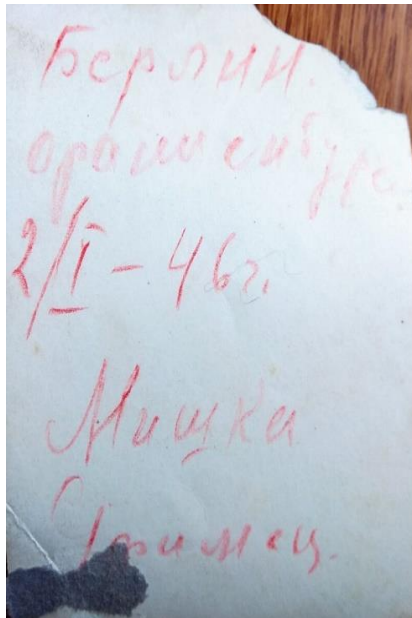 Берлин.
ораниенбург
2/I - 46г.
Мишка